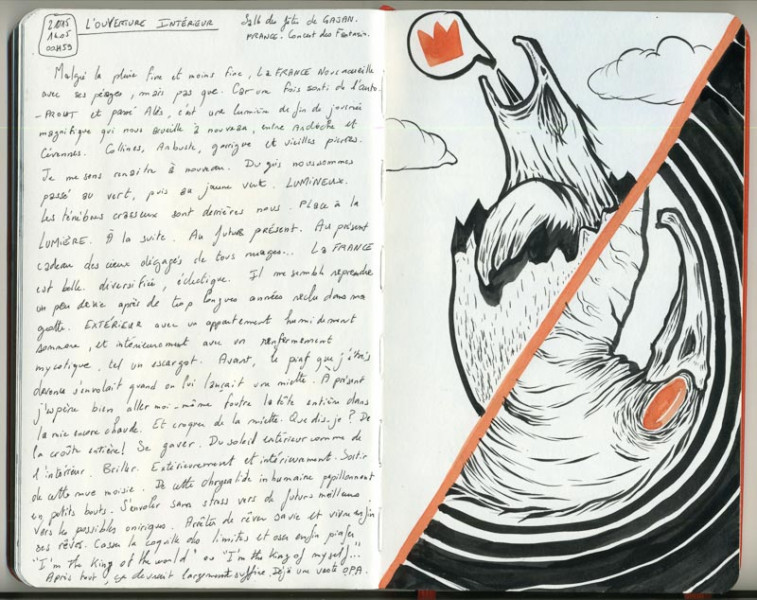 21.05
16.05
00H59
L'OUVERTURE INTÉRIEUR
Salle des fêtes de GAJAN.
FRANCE. Concert des
Malgré la pluie fine et moins fine, LA FRANCE nous accueille
avec ses péages, mais pas que. Car une fois sorti de l'auto-
-route et passé Alès, c'est une lumière de fin de journée
magnifique qui nous accueille à nouveau, entre Ardèche et
Cévennes. Collines, Arbuste, garrigue et vieilles pierres.
Je me sens renaître à nouveau. Du gris nous sommes
passé au vert, puis au jaune vert. LUMINEUX.
Les ténèbres crasseux sont derrières nous. PLACE à la
LUMIÈRE. À la suite. Au futur PRÉSENT. Au présent
cadeau des cieux dégagés de tous nuages... LA FRANCE
est belle. diversifiée, éclectique. Il me semble reprendre
un peu de vie après de trop longues années reclu dans ma
grotte. EXTÉRIEUR avec un appartement humidement
sommaire, et intérieurement avec un renfermement
mycotique. tel un escargot. Avant, le piaf que j'étais
devenu s'envolait quand on lui lançait une miette. À présent
j'espère bien aller moi-même foutre la tête entière dans
la mie encore chaude. Et croquer de la miette. Que dis-je ? De
la croûte entière! Se gaver. Du soleil extérieur comme de
l'intérieur. Briller. Extérieurement et intérieurement. Sortir
de cette mue moisie. De cette chrysalide inhumaine papillonnent
en petits bouts. S'envoler sans stress vers de futurs meilleurs
vers les possibles oniriques. Arrêter de rêver sa vie et vivre enfin
ses rêves. Casser la coquille des limites et oser enfin piafer
"I'm the King of the world" ou "I'm the King of myself"...
Après tout, ça devrait largement suffire. Déjà une vaste OPA.